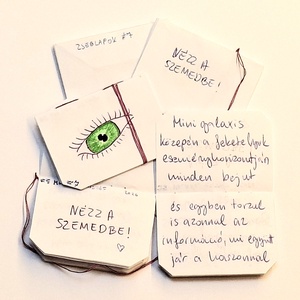 ZSEBLAPOK #7
NÉZZ A
SZEMEDBE!
NÉZZ A
SZEMEDBE!
Mini galaxis
közepén a fekete lyuk
eseményhorizontján
minden begut
és egyben torzul
is azonnal az
információ, mi együtt
jár a haszonnal